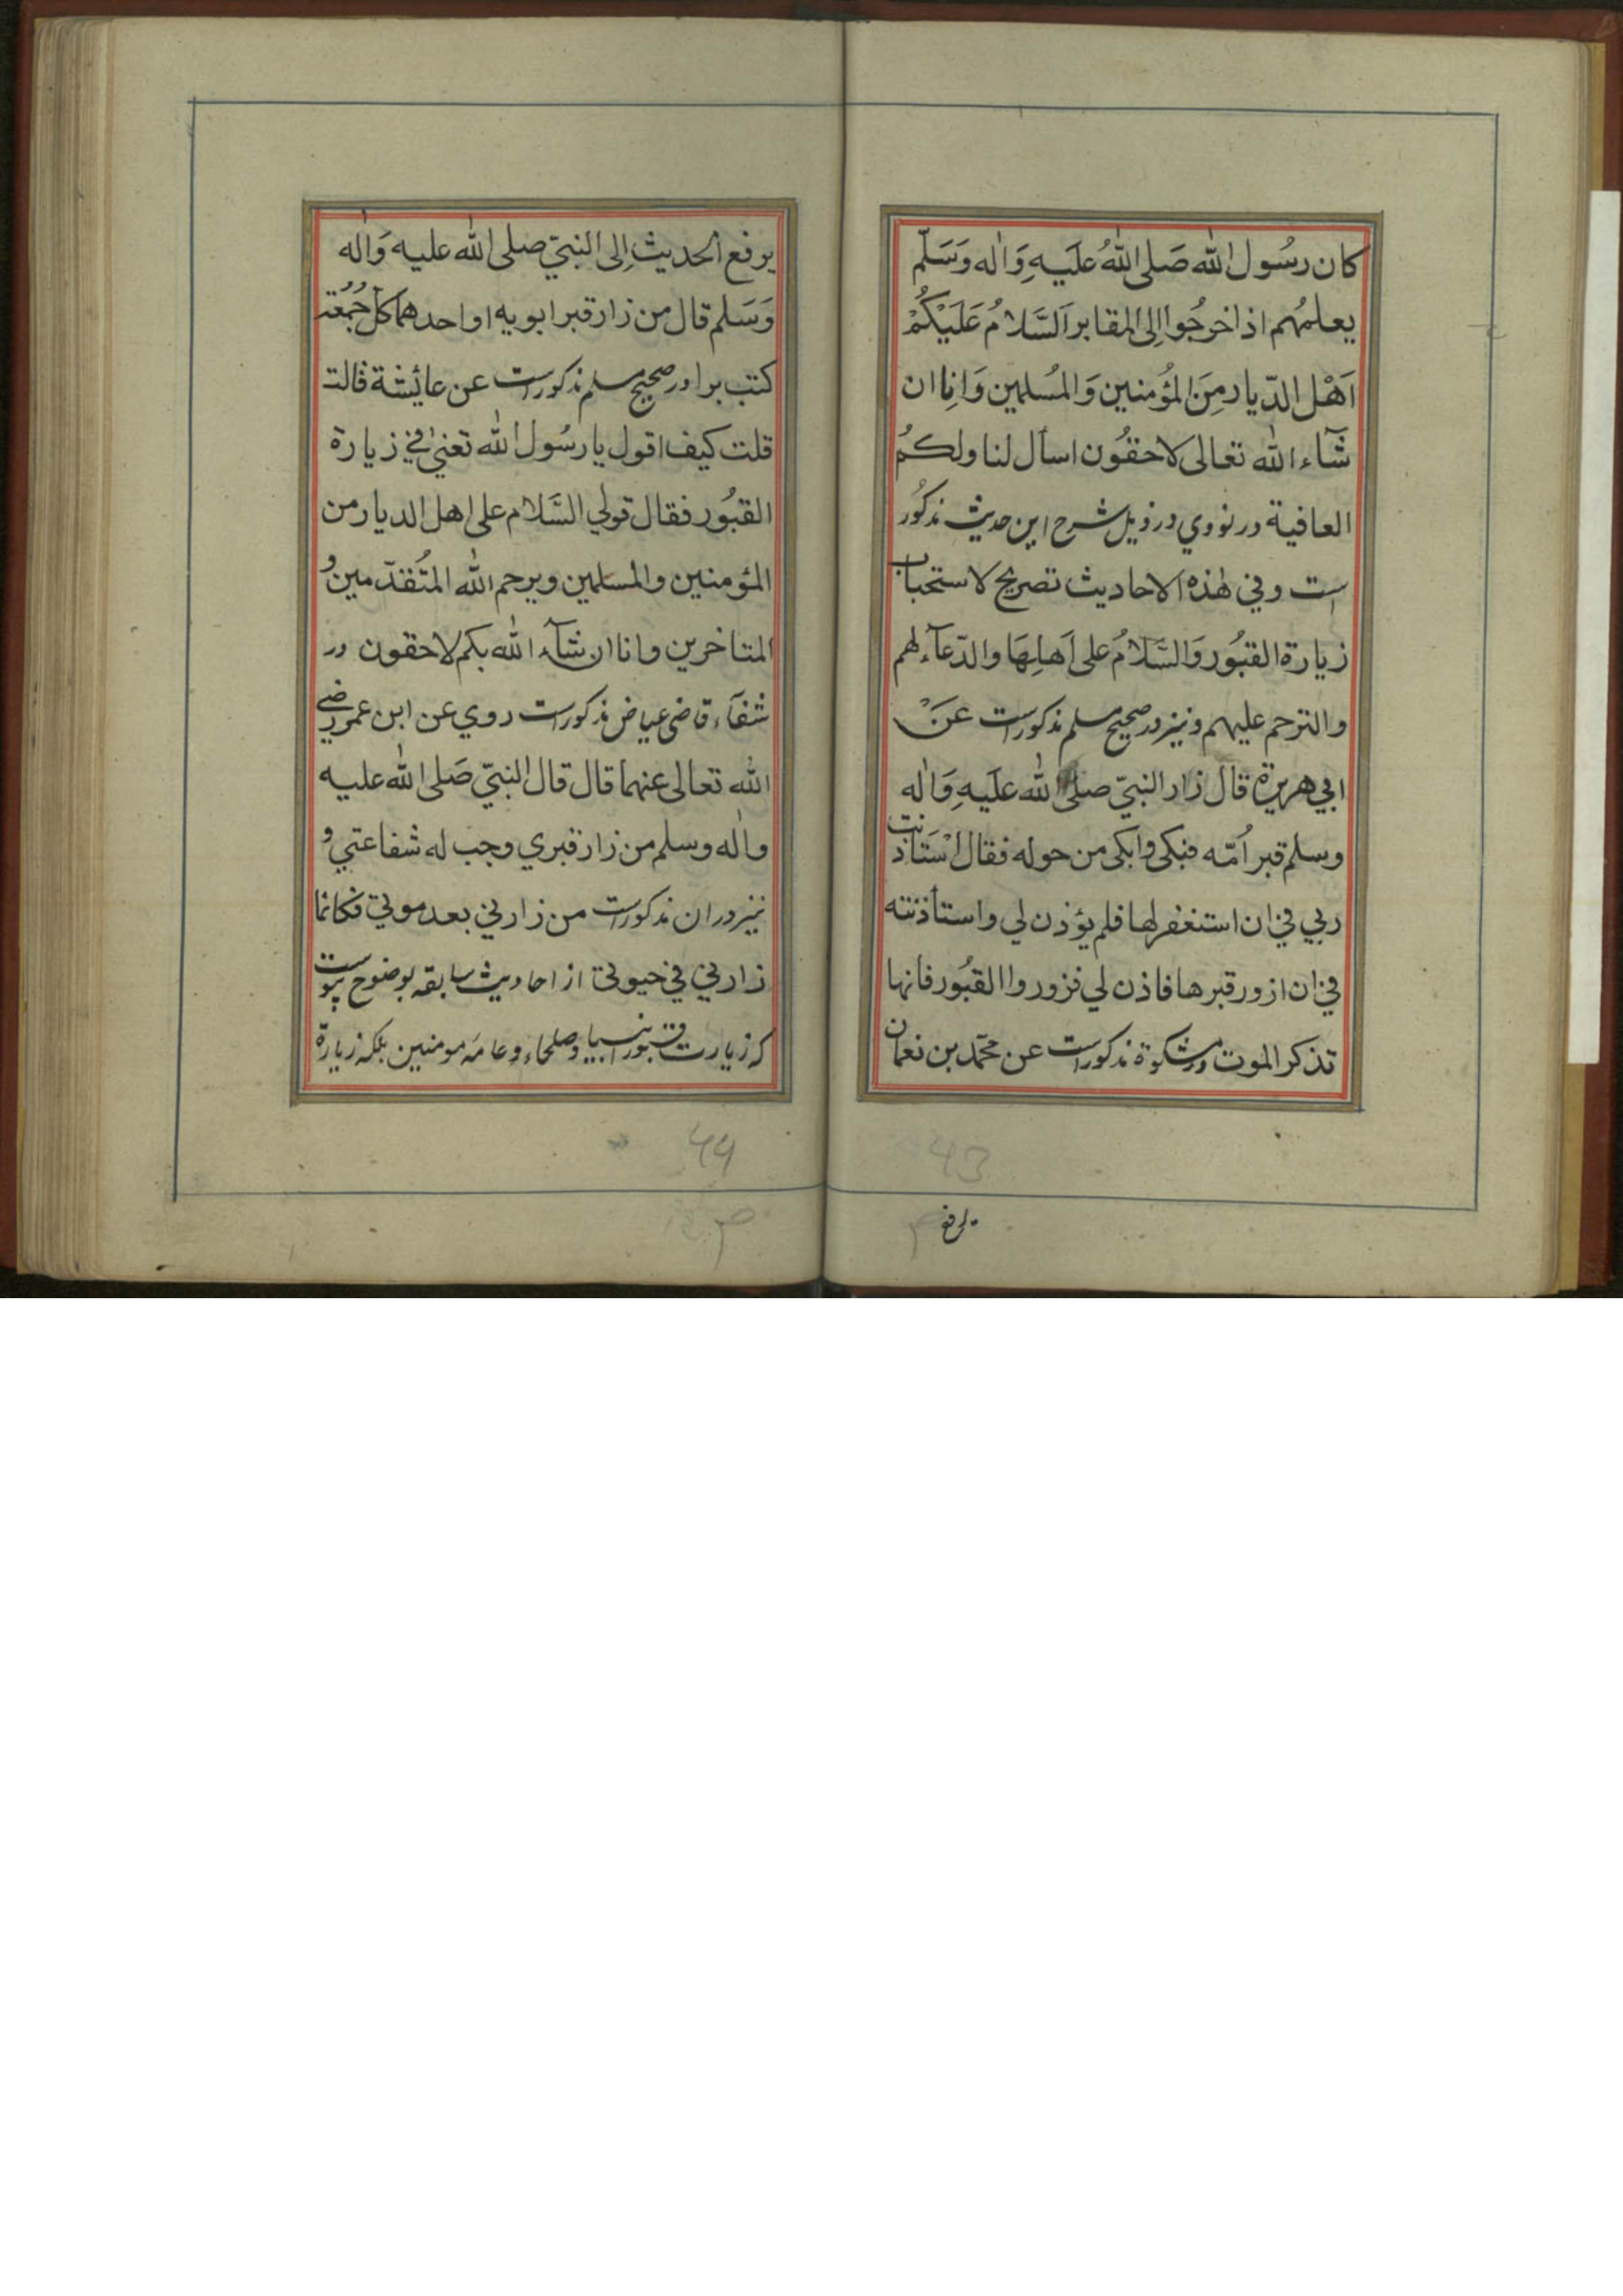 كان رسُول الله صَلى اللهُ عَليهِ وَاٰله وَسَلّم
يعلمُهم اذا خرجُوا اِلى المقابر اَلسَّلامُ عَلَيْكُمْ
اَهْل الدّيار مِنَ المؤُمنين وَالمُسلمين وَاِنا ان
شَآء الله تعالى لاحقُون اسأل لنا ولكمُ
العافية در نووي در ذيل شرح اين حديث مذكُور
است وفي هٰذه الاحاديث تصريح لاستحباب
زيارة القبُور وَالسَّلامُ على اَهلِهَا والدّعآء لهم
والترحم عليهم ونيز در صحيح مسلم مذكور است عَنْ
ابي هريرة قال زار النبيّ صلى الله عَليهِ وَاٰله
وسلم قبر اُمّه فبكى وابكى من حوله فقال اسْتَاذنت
ربي في ان استغفر لها فلم يؤذن لي واستأذنته
في ان ازور قبرها فاذن لي فزوروا القبُور فانها
تذكر الموت در مشكوة مذكور است عن محمّد بن نعمان
يرفع الحديث اِلى النبيّ صلى الله عليه وَاٰله
وَسَلم قال من زار قبر ابويه او احدهما كل جُمُعة
كتب برا در صحيح مسلم مذكور است عن عائيشة قالت
قلت كيف اقول يا رسُول الله تعني في زيارة
القبُور فقال قولي السَّلام على اهل الديار من
المؤمنين والمسلمين ويرحم الله المتُقدّمين و
المتاخرين وانا ان شآء الله بكم لاحقون در
شفآء قاضى عياض مذكور است روي عن ابن عمر رضي
الله تعالى عنهما قال قال النبيّ صَلى الله عليه
واٰله وسلم من زار قبري وجب له شفاعتي و
نيز در ان مذكور است من زارني بعد موتي فكانما
زارني في حيوتي از احاديث سابقه بوضوح پيوست
كه زيارت قبور انبيا وصلحاء وعامه مومنين بلكه زيارة
يرفع
44
43